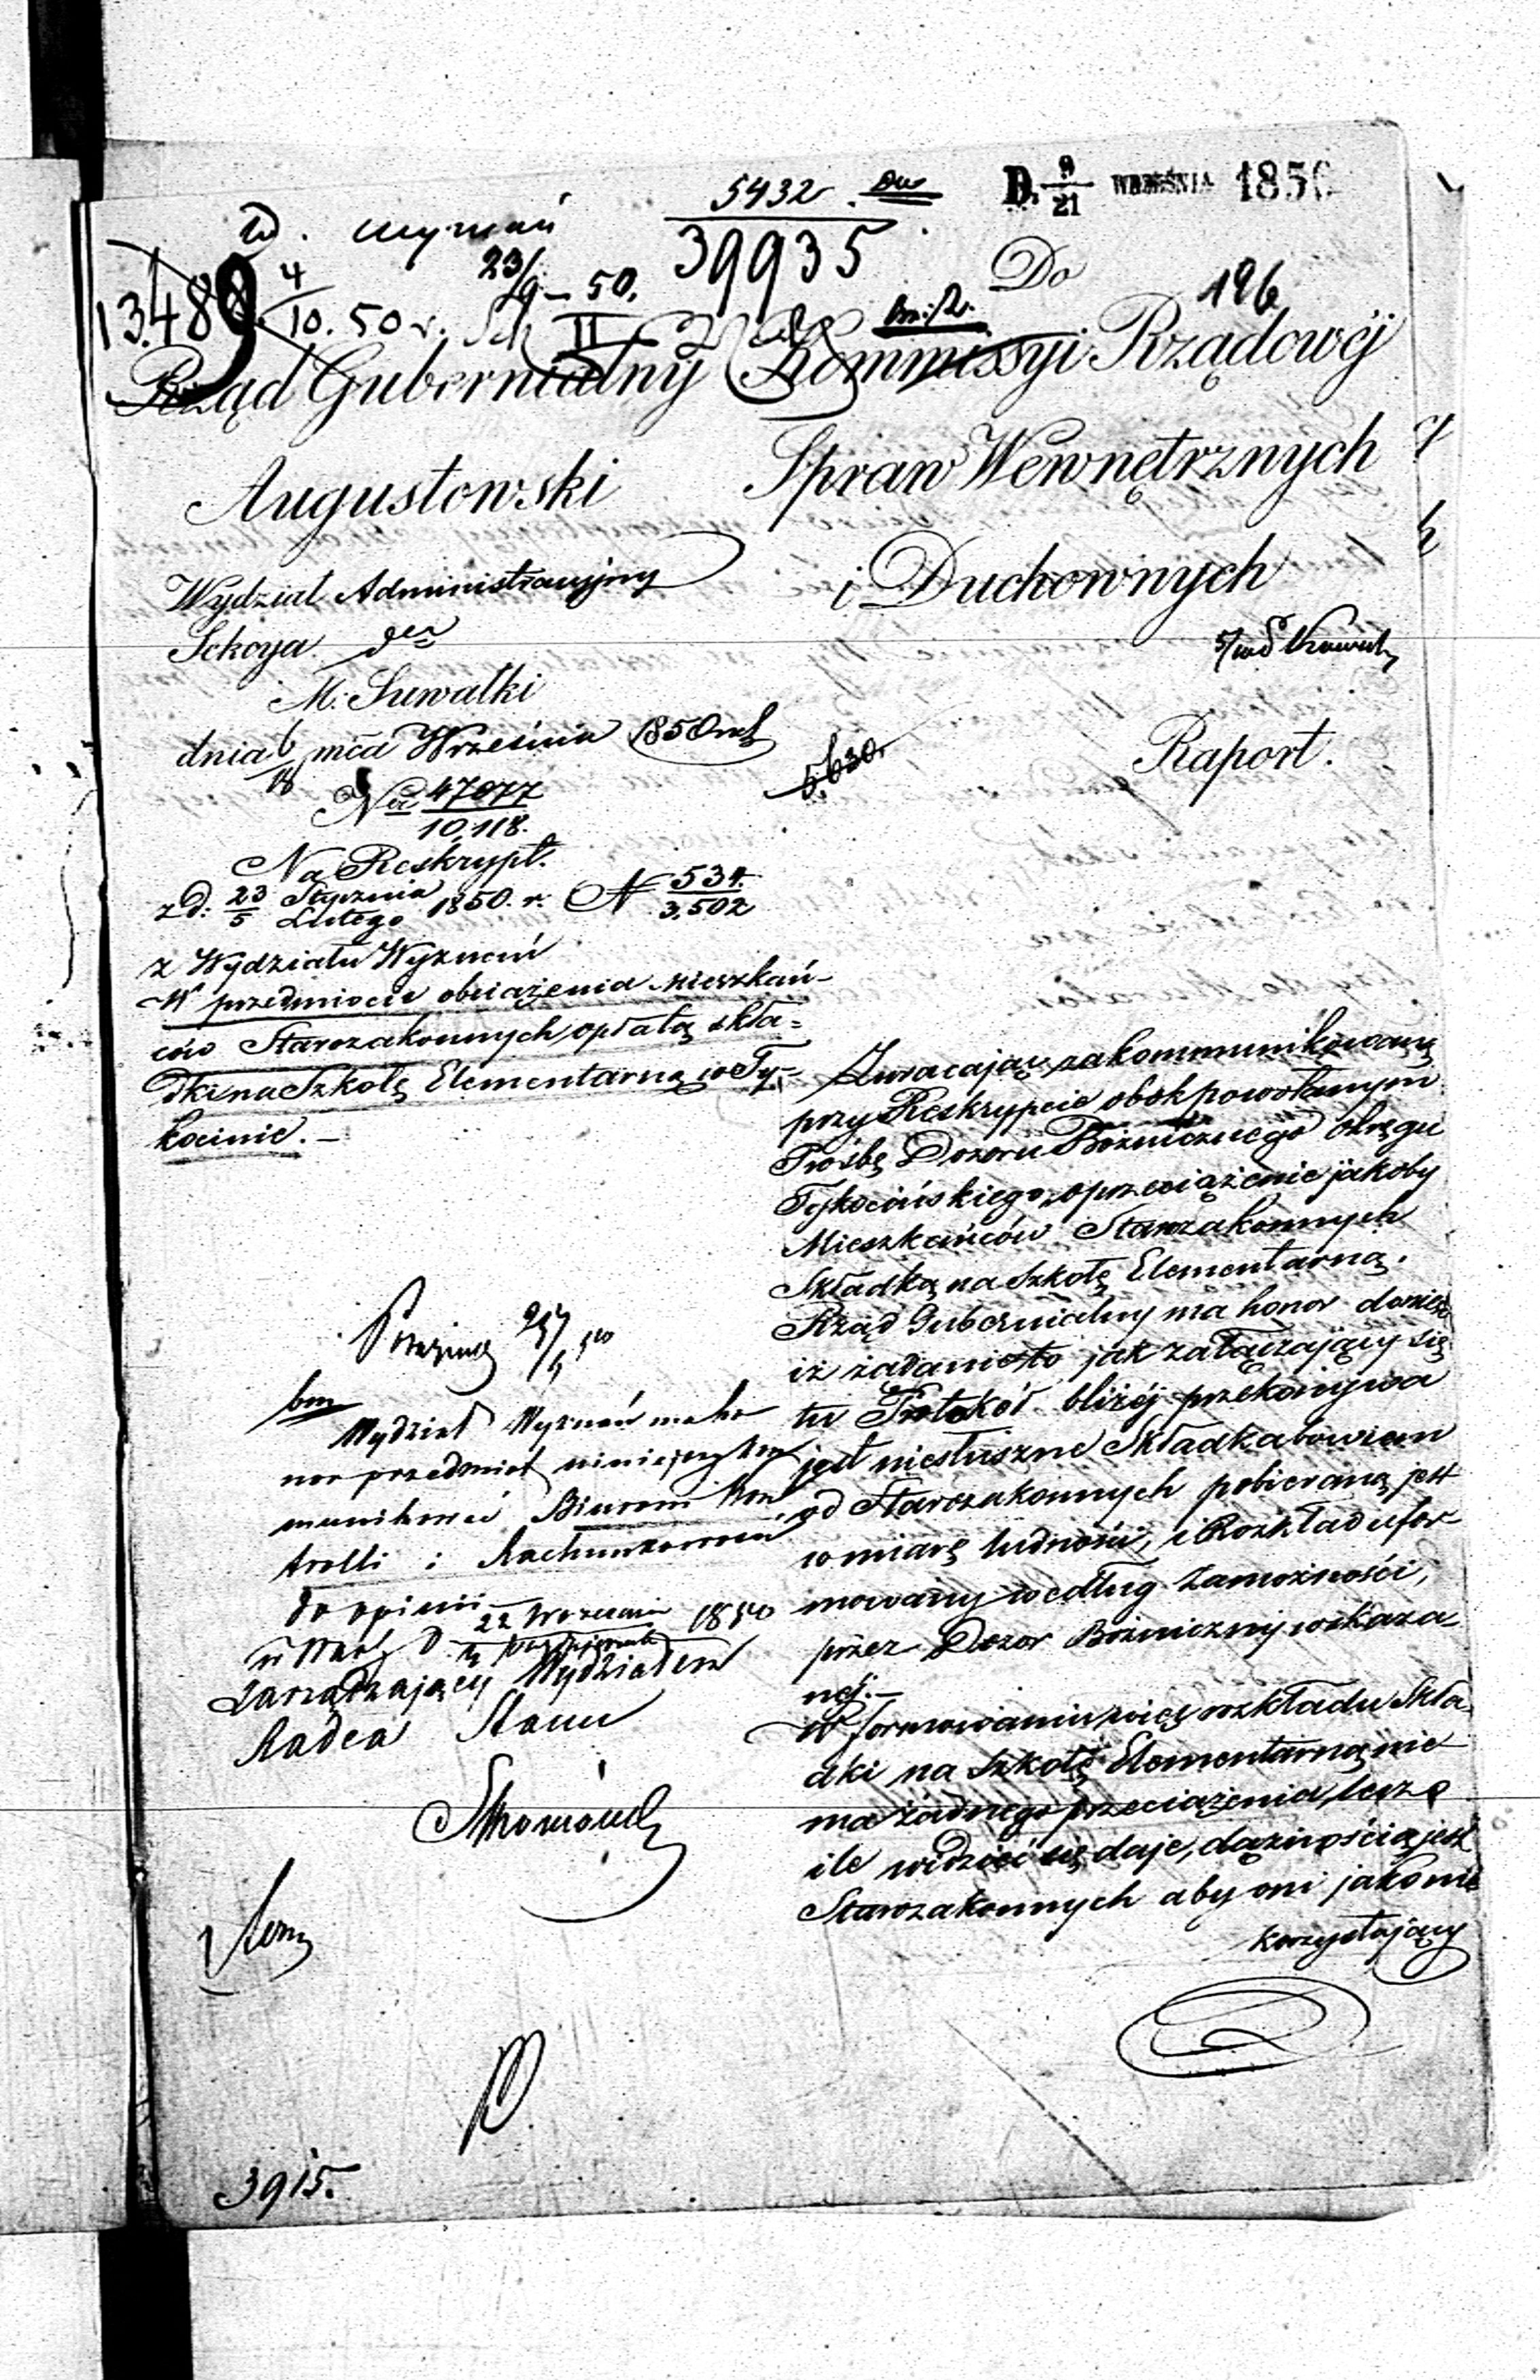 5432
39935
D. 9/21 WRZEŚNIA 1850
W. wyznań
23/9 – 50.
13.489
4/10. 50 r.
II
126
Do
Rząd Gubernialny
Augustowski
Wydział Administracyjny
Sekcya
M. Suwałki
dnia 6/18 mca Września 1850 roku
No 47077/10,118.
Na Reskrypt.
z d: 23 Stycznia/5 Lutego 1850. r. N 534./3,502
z Wydziału Wyznań
W przedmiocie obciążenia mieszkań-
ców Starozakonnych opłatą skła=
dki na Szkołę Elementarną w Ty-
kocinie. –
Kommissyi Rządowéj
Spraw Wewnętrznych
i Duchownych
Raport.
5,630.
Zwracając zakommunikowaną
przy Reskrypcie obok powołanym
Prośbę Dozoru Bożnicznego okręgu
Tykocińskiego, o przeciążenie jakoby
Mieszkańców Starozakonnych
Składką na Szkołę Elementarną.
Rząd Gubernialny ma honor donieść
iż żądanie to jak załączający się
tu Protokół bliżéj przekonywa
jest niesłuszne Składka bowiem
od Starozakonnych pobieraną jest
w miarę ludności, i Rozkład ufor-
mowany według Zamożności,
przez Dozor Bożniczny wskaza-
néj. –
W formowaniu więc rozkładu Skła-
dki na Szkołę Elementarną nie
ma żadnego przeciążenia, lecz o
ile widzieć się daje, dążnością jest
Starozakonnych aby oni jako nie
korzystający
Wydział Wyznań ma ho-
nor przedmiot niniejszy kom
munikować Biurowi Kon
trolli i Rachunkowości
do opinii
22 Września 1850
Zarządzający Wydziałem
Radca Stanu
3915.